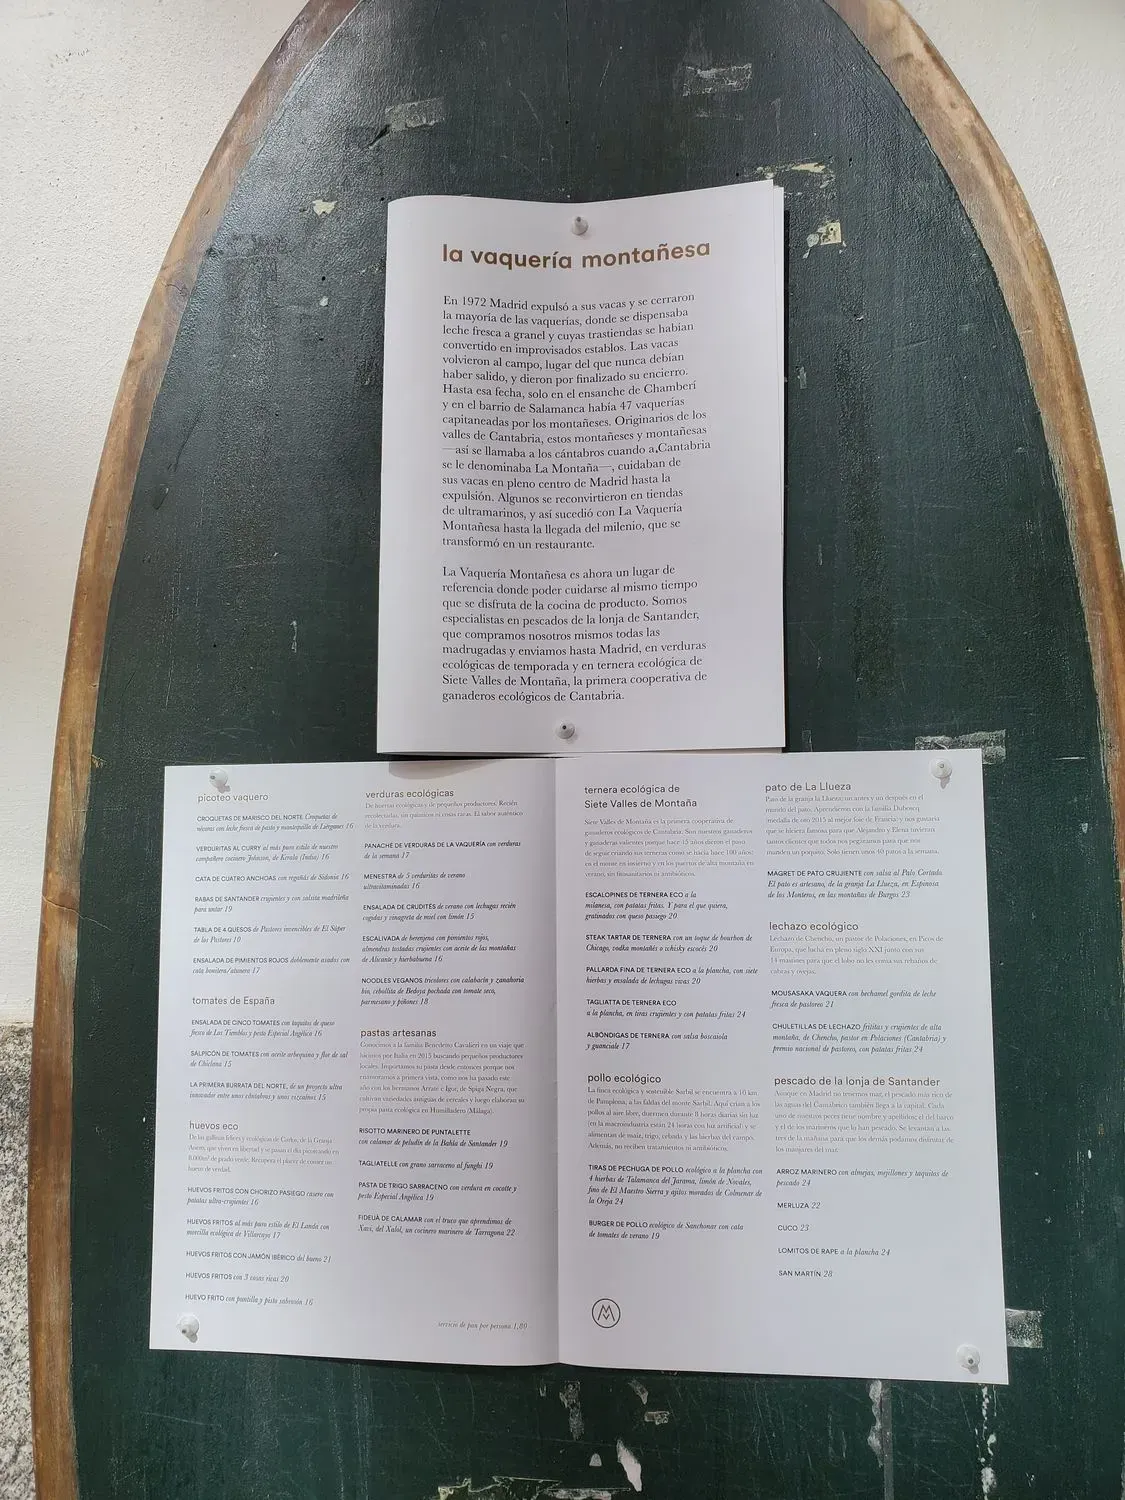 la vaquería montañesa
En 1972 Madrid expulsó a sus vacas y se cerraron
la mayoría de las vaquerías, donde se dispensaba
leche fresca a granel y cuyas trastiendas se habían
convertido en improvisados establos. Las vacas
volvieron al campo, lugar del que nunca debían
haber salido, y dieron por finalizado su encierro.
Hasta esa fecha, solo en el ensanche de Chamberí
y en el barrio de Salamanca había 47 vaquerías
capitaneadas por los montañeses. Originarios de los
valles de Cantabria, estos montañeses y montañesas
—así se llamaba a los cántabros cuando a Cantabria
se le denominaba La Montaña—, cuidaban de
sus vacas en pleno centro de Madrid hasta la
expulsión. Algunos se reconvirtieron en tiendas
de ultramarinos, y así sucedió con La Vaquería
Montañesa hasta la llegada del milenio, que se
transformó en un restaurante.
La Vaquería Montañesa es ahora un lugar de
referencia donde poder cuidarse al mismo tiempo
que se disfruta de la cocina de producto. Somos
especialistas en pescados de la lonja de Santander,
que compramos nosotros mismos todas las
madrugadas y enviamos hasta Madrid, en verduras
ecológicas de temporada y en ternera ecológica de
Siete Valles de Montaña, la primera cooperativa de
ganaderos ecológicos de Cantabria.
picoteo vaquero
CROQUETAS DE MARISCO DEL NORTE Croquetas de
nécoras con leche fresca de pasto y mantequilla de Liérganes 16
VERDURITAS AL CURRY al más puro estilo de nuestro
compañero cocinero Johnson, de Kerala (India) 16
CATA DE CUATRO ANCHOAS con regañás de Sidonia 16
RABAS DE SANTANDER crujientes y con salsita madrileña
para untar 19
TABLA DE 4 QUESOS de Pastores invencibles de El Súper
de los Pastores 10
ENSALADA DE PIMIENTOS ROJOS doblemente asados con
cata bonitera/atunera 17
tomates de España
ENSALADA DE CINCO TOMATES con taquitos de queso
fresco de Las Tiemblos y pesto Especial Angélica 16
SALPICÓN DE TOMATES con aceite arbequino y flor de sal
de Chiclana 15
LA PRIMERA BURRATA DEL NORTE, de un proyecto ultra
innovador entre unos cántabros y unos vizcaínos 15
huevos eco
De las gallinas felices y ecológicas de Carlos, de la Granja
Anero, que viven en libertad y se pasan el día picoteando en
8.000m² de prado verde. Recupera el placer de comer un
huevo de verdad.
HUEVOS FRITOS CON CHORIZO PASIEGO casero con
patatas ultra-crujientes 16
HUEVOS FRITOS al más puro estilo de El Landa con
morcilla ecológica de Villarcayo 17
HUEVOS FRITOS CON JAMÓN IBÉRICO del bueno 21
HUEVOS FRITOS con 3 cosas ricas 20
HUEVO FRITO con puntilla y pisto sabrosón 16
verduras ecológicas
De huertas ecológicas y de pequeños productores. Recién
recolectadas, sin químicos ni cosas raras. El sabor auténtico
de la verdura.
PANACHÉ DE VERDURAS DE LA VAQUERÍA con verduras
de la semana 17
MENESTRA de 5 verduritas de verano
ultravitaminadas 16
ENSALADA DE CRUDITÉS de verano con lechugas recién
cogidas y vinagreta de miel con limón 15
ESCALIVADA de berenjena con pimientos rojos,
almendras tostadas crujientes con aceite de las montañas
de Alicante y hierbabuena 16
NOODLES VEGANOS tricolores con calabacín y zanahoria
bio, cebollita de Bedoya pochada con tomate seco,
parmesano y piñones 18
pastas artesanas
Conocimos a la familia Benedetto Cavalieri en un viaje que
hicimos por Italia en 2015 buscando pequeños productores
locales. Importamos su pasta desde entonces porque nos
enamoramos a primera vista, como nos ha pasado este
año con los hermanos Arrate e Igor, de Spiga Negra, que
cultivan variedades antiguas de cereales y luego elaboran su
propia pasta ecológica en Humilladero (Málaga).
RISOTTO MARINERO DE PUNTALETTE
con calamar de peludín de la Bahía de Santander 19
TAGLIATELLE con grano sarraceno al funghi 19
PASTA DE TRIGO SARRACENO con verdura en cocotte y
pesto Especial Angélica 19
FIDEUÀ DE CALAMAR con el truco que aprendimos de
Xavi, del Xalol, un cocinero marinero de Tarragona 22
servicio de pan por persona 1,80
ternera ecológica de
Siete Valles de Montaña
Siete Valles de Montaña es la primera cooperativa de
ganaderos ecológicos de Cantabria. Son nuestros ganaderos
y ganaderas valientes porque hace 15 años dieron el paso
de seguir criando sus terneras como se hacía hace 100 años:
en el monte en invierno y en los puertos de alta montaña en
verano, sin fitosanitarios ni antibióticos.
ESCALOPINES DE TERNERA ECO a la
milanesa, con patatas fritas. Y para el que quiera,
gratinados con queso pasiego 20
STEAK TARTAR DE TERNERA con un toque de bourbon de
Chicago, vodka montañés o whisky escocés 20
PALLARDA FINA DE TERNERA ECO a la plancha, con siete
hierbas y ensalada de lechugas vivas 20
TAGLIATTA DE TERNERA ECO
a la plancha, en tiras crujientes y con patatas fritas 24
ALBÓNDIGAS DE TERNERA con salsa boscaiola
y guanciale 17
pollo ecológico
La finca ecológica y sostenible Sarbil se encuentra a 16 km
de Pamplona, a las faldas del monte Sarbil. Aquí crían a los
pollos al aire libre, duermen durante 8 horas diarias sin luz
(en la macroindustria están 24 horas con luz artificial) y se
alimentan de maíz, trigo, cebada y las hierbas del campo.
Además, no reciben tratamientos ni antibióticos.
TIRAS DE PECHUGA DE POLLO ecológico a la plancha con
4 hierbas de Talamanca del Jarama, limón de Novales,
fino de El Maestro Sierra y ajitos morados de Colmenar de
la Oreja 24
BURGER DE POLLO ecológico de Sanchonar con cata
de tomates de verano 19
M
pato de La Llueza
Pato de la granja la Llueza; un antes y un después en el
mundo del pato. Aprendieron con la familia Dubocq
(medalla de oro 2015 al mejor foie de Francia) y nos gustaría
que se hiciera famosa para que Alejandro y Elena tuvieran
tantos clientes que todos nos pegáramos para que nos
manden un poquito. Solo tienen unos 40 patos a la semana.
MAGRET DE PATO CRUJIENTE con salsa al Palo Cortado.
El pato es artesano, de la granja La Llueza, en Espinosa
de los Monteros, en las montañas de Burgos 23
lechazo ecológico
Lechazo de Chencho, un pastor de Polaciones, en Picos de
Europa, que lucha en pleno siglo XXI junto con sus
14 mastines para que el lobo no les coma sus rebaños de
cabras y ovejas.
MOUSASAKA VAQUERA con bechamel gordita de leche
fresca de pastoreo 21
CHULETILLAS DE LECHAZO frititas y crujientes de alta
montaña, de Chencho, pastor en Polaciones (Cantabria) y
premio nacional de pastoreo, con patatas fritas 24
pescado de la lonja de Santander
Aunque en Madrid no tenemos mar, el pescado más rico de
las aguas del Cantábrico también llega a la capital. Cada
uno de nuestros peces tiene nombre y apellidos; el del barco
y el de los marineros que lo han pescado. Se levantan a las
tres de la mañana para que los demás podamos disfrutar de
los manjares del mar.
ARROZ MARINERO con almejas, mejillones y taquitos de
pescado 24
MERLUZA 22
CUCO 23
LOMITOS DE RAPE a la plancha 24
SAN MARTÍN 28